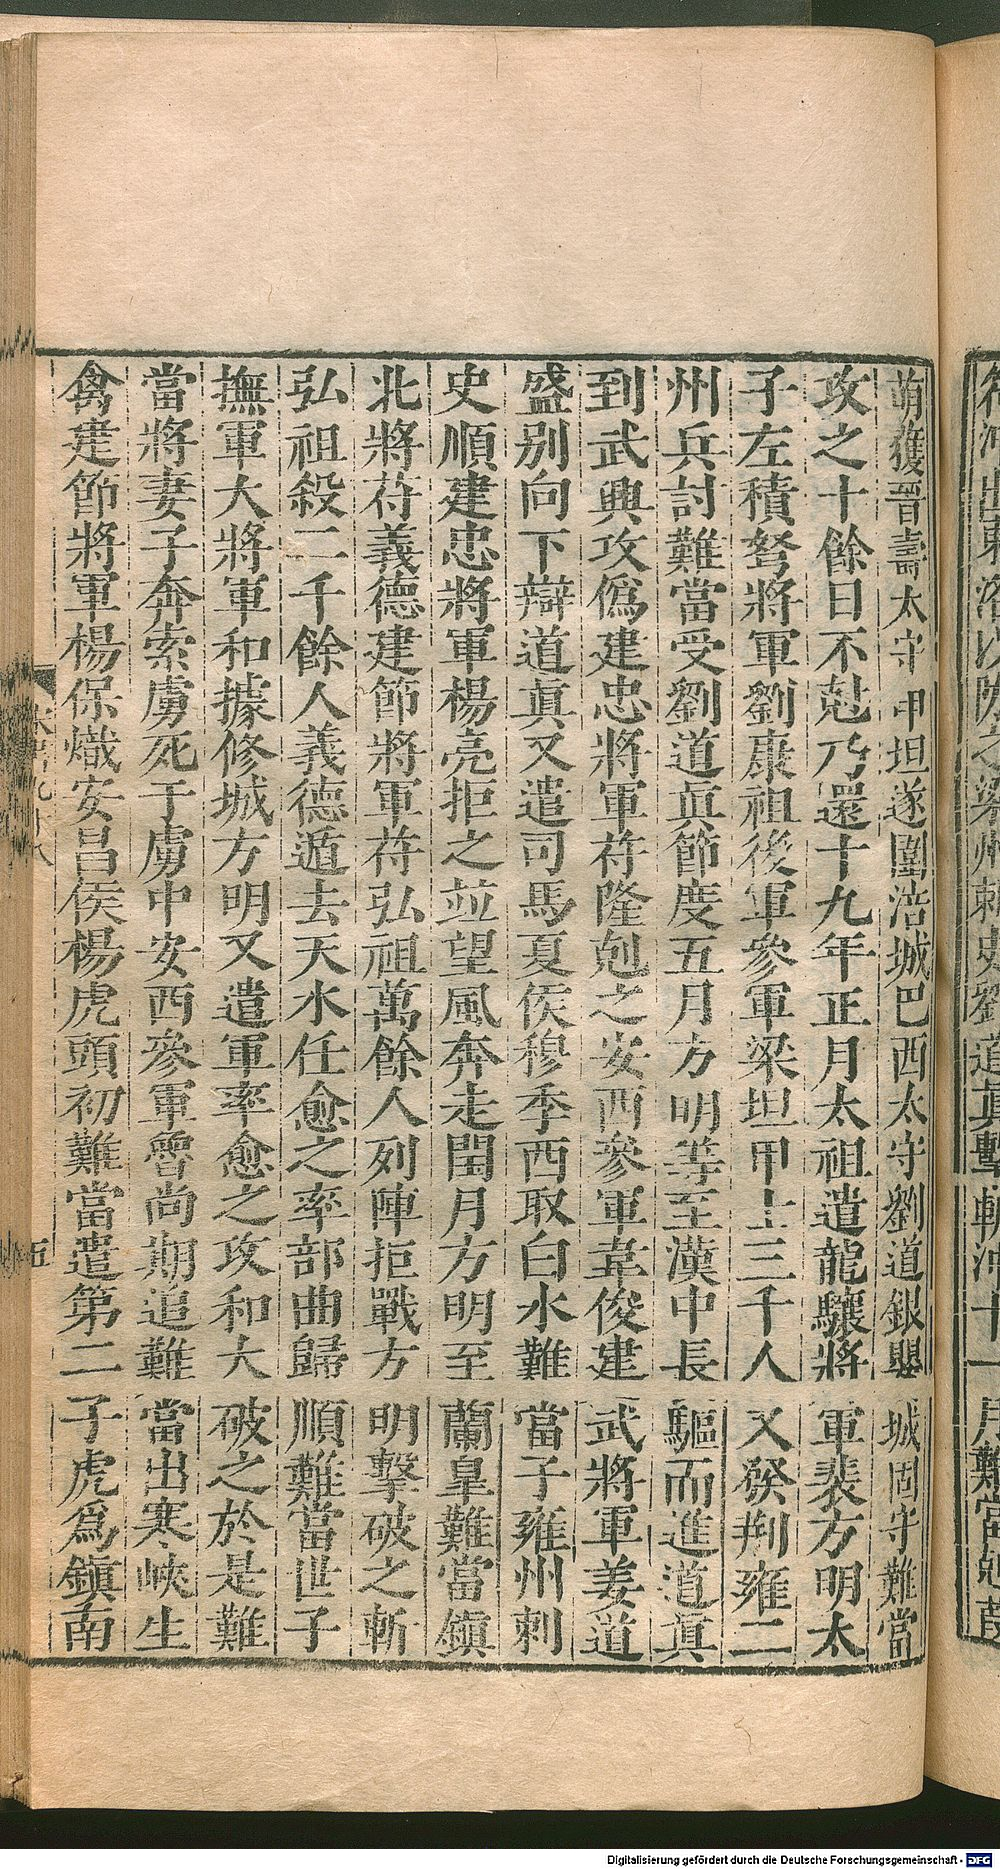 萌獲晉壽太守申坦遂圍浩城巴西太守劉道銀嬰城固守難當
攻之十餘日不尅乃還十九年正月太祖遣龍驤將軍裴方明太
子左積弩將軍劉康祖後軍參軍梁坦甲士三千人又發荆雍二
州兵討難當受劉道眞節度五月方明等至漢中長驅而進道眞
到武興攻僞建忠將軍苻隆剋之安西參軍韋俊建武將軍姜道
盛别向下辯道眞又遣司馬夏侯穆季西取白水難當子雍州刺
史順建忠將軍楊亮拒之並望風奔走閏月方明至蘭皐難當鎭
北將苻義德建節將軍苻弘祖萬餘人列陣拒戰方明擊破之斬
弘祖殺二千餘人義德遁去天水任愈之率部曲歸順難當世子
撫軍大將軍和據修城方明又遣軍率愈之攻和大破之於是難
當將妻子奔索虜死于虜中安西參軍魯尚期追難當出寒峽生
禽建節將軍楊保熾安昌侯楊虎頭初難當遣第二子虎爲鎭南
五
Digitalisierung gefördert durch die Deutsche Forschungsgemeinschaft - DFG